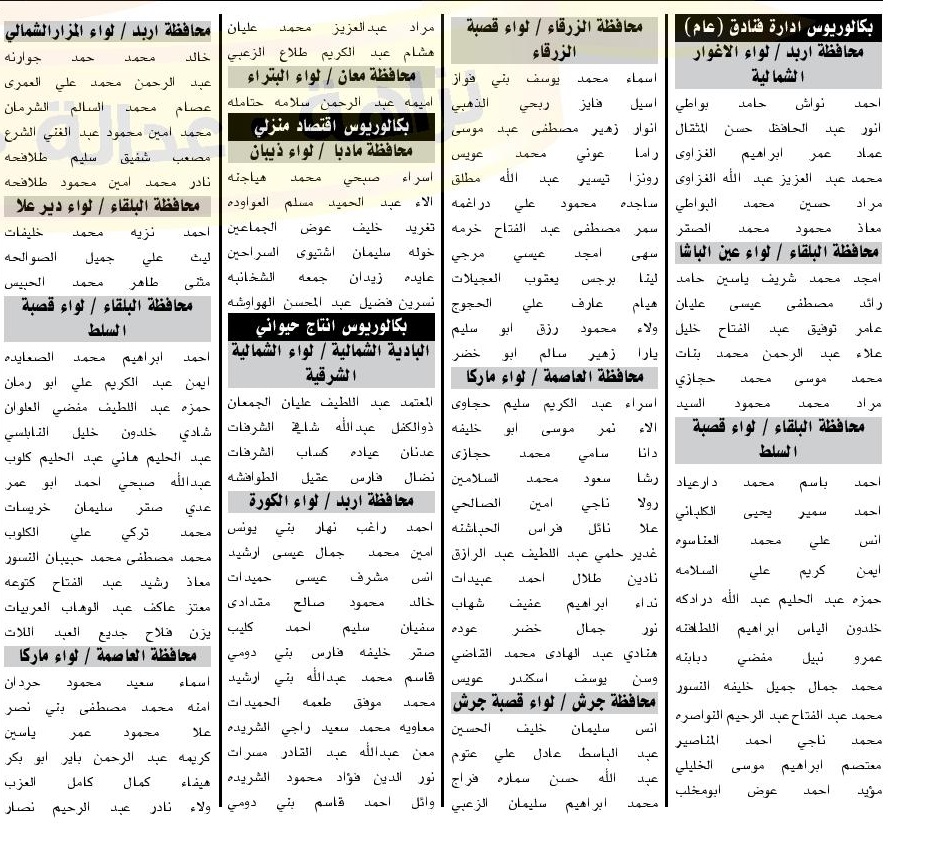 بكالوريوس ادارة فنادق (عام)
محافظة اربد / لواء الاغوار
الشمالية
احمد نواش حامد بواطي
انور عبد الحافظ حسن المثقال
عماد عمر ابراهيم الغزاوى
محمد عبد العزيز عبد الله الغزاوى
مراد حسين محمد البواطي
معاذ محمود محمد الصقر
محافظة البلقاء / لواء عين الباشا
امجد محمد شريف ياسين حامد
رائد مصطفى عيسى عليان
عامر توفيق عبد الفتاح خليل
علاء عبد الرحمن محمد بنات
محمد موسى محمد حجازي
مراد محمد محمود السيد
محافظة البلقاء / لواء قصبة
السلط
احمد باسم محمد دارعياد
احمد سمير يحيى الكلباني
انس علي محمد العناسوه
ايمن كريم علي السلامه
حمزه عبد الحليم عبد الله درادكه
خلدون الياس ابراهيم اللطافته
عمرو نبيل مفضي دبابنه
محمد جمال جميل خليفه النسور
محمد عبد الفتاح عبد الرحيم النواصره
محمد ناجي احمد المناصير
معتصم ابراهيم موسى الخليلي
مؤيد احمد عوض ابومخلب
محافظة الزرقاء / لواء قصبة
الزرقاء
اسماء محمد يوسف بني فواز
اسيل فايز ربحي الذهبي
انوار زهير مصطفى عبد موسى
راما عوني محمد عويس
رونزا تيسير عبد الله مطلق
ساجده محمود علي دراغمه
سمر مصطفى عبد الفتاح خرمه
سهى امجد عيسي مرجي
لينا برجس يعقوب العجيلات
هيام عارف علي الحجوج
ولاء محمود رزق ابو سليم
يارا زهير سالم ابو خضر
محافظة العاصمة / لواء ماركا
اسراء عبد الكريم سليم حجاوى
الاء نمر موسى ابو خليفه
دانا سامي محمد حجازى
رشا سعود محمد السلامين
رولا ناجي امين الصالحي
علا نائل فراس الحباشنه
غدير حلمي عبد اللطيف عبد الرازق
نادين طلال احمد عبيدات
نداء ابراهيم عفيف شهاب
نور جمال خضر عوده
هنادي عبد الهادى محمد القاضي
وسن يوسف اسكندر عويس
محافظة جرش / لواء قصبة جرش
انس سليمان خليف الحسين
عبد الباسط عادل علي عتوم
عبد الله حسن سماره فراج
محمد ابراهيم سليمان الزعبي
مراد عبدالعزيز محمد عليان
هشام عبد الكريم طلاع الزعبي
محافظة معان / لواء البتراء
اميمه عبد الرحمن سلامه حتامله
بكالوريوس اقتصاد منزلي
محافظة مادبا / لواء ذيبان
اسراء صبحي محمد هياجنه
الاء عبد الحميد مسلم العواوده
تغريد خليف عوض الجماعين
خوله سليمان اشتيوى السراحين
عايده زيدان جمعه الشخانبه
نسرين فضيل عبد المحسن الهواوشه
بكالوريوس انتاج حيواني
البادية الشمالية / لواء الشمالية
الشرقية
المعتمد عبد اللطيف عليان الجمعان
ذوالكفل عبدالله شايخ الشرفات
عدنان عياده كساب الشرفات
نضال فارس عقيل الطوافشه
محافظة اربد / لواء الكورة
احمد راغب نهار بني يونس
امين محمد جمال عيسى ارشيد
انس مشرف عيسى حميدات
خالد محمود صالح مقدادى
سفيان سليم احمد كليب
صقر خليفه فارس بني دومي
قاسم محمد عبدالله بني ارشيد
محمد موفق طعمه الحميدات
معاويه محمد سعيد راجي الشريده
معن عبدالله عبد القادر مسرات
نور الدين فؤاد محمود الشريده
وائل احمد قاسم بني دومي
محافظة اربد / لواء المزارالشمالي
خالد محمد حمد جوارنه
عبد الرحمن محمد علي العمرى
عصام محمد السالم الشرمان
محمد امين محمود عبد الغني الشرع
مصعب شفيق سليم طلافحه
نادر محمد امين محمود طلافحه
محافظة البلقاء / لواء دير علا
احمد نزيه محمد خليفات
ليث علي جميل الصوالحه
مثنى طاهر محمد الحبيس
محافظة البلقاء / لواء قصبة
السلط
احمد ابراهيم محمد الصعايده
ايمن عبد الكريم علي ابو رمان
حمزه عبد اللطيف مفضي العلوان
شادي خلدون خليل النابلسي
عبد الحليم هاني عبد الحليم كلوب
عبدالله صبحي احمد ابو عمر
عدي صقر سليمان خريسات
محمد تركي علي الكلوب
محمد مصطفى محمد حبيبان النسور
معاذ رشيد عبد الفتاح كتوعه
معتز عاكف عبد الوهاب العربيات
يزن فلاح جديع العبد اللات
محافظة العاصمة / لواء ماركا
اسماء سعيد محمود حردان
امنه محمد مصطفى بني نصر
علا محمود عمر ياسين
كريمه عبد الرحمن باير ابو بكر
هيفاء كمال كامل العزب
ولاء نادر عبد الرحيم نصار